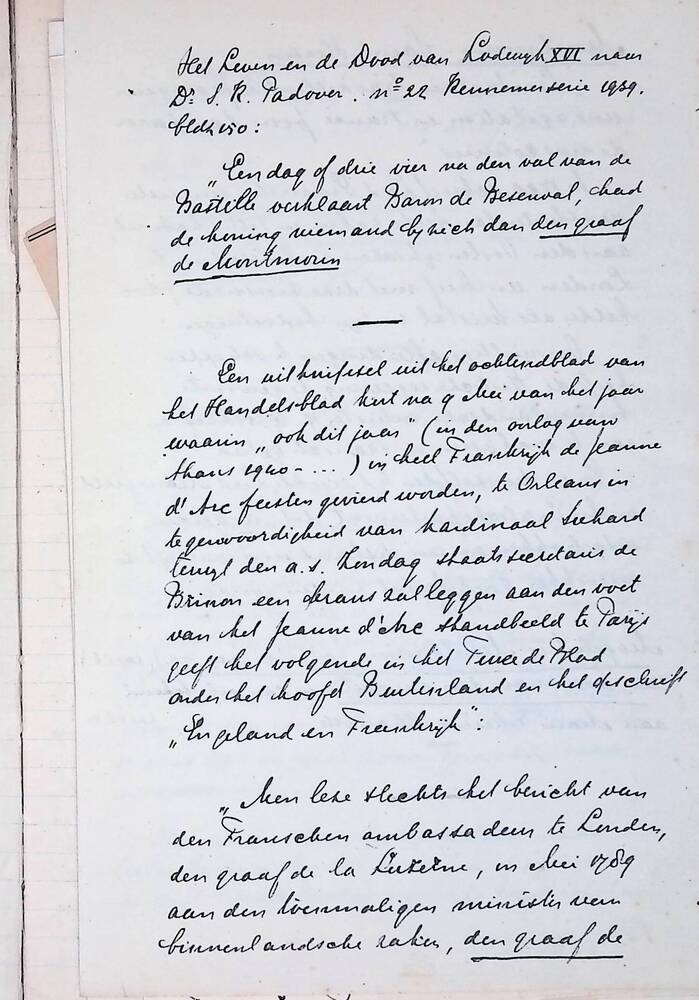 Het Leven en de Dood van Lodewyk XVI naar
Dr. S. K. Padover. no 22 Kennemerserie 1939.
bldz 150:
„Een dag of drie vier na den val van de
Bastille verklaart Baron de Besenval, had
de koning niemand by zich dan den graaf
de Montmorin
Een uitknipsel uit het ochtendblad van
het Handelsblad kort na 9 Mei van het jaar
waarin „ook dit jaar" (in den oorlog van
thans 1940 - ... ) in heel Frankrijk de Jeanne
d'Arc feesten gevierd worden, te Orleans in
tegenwoordigheid van Kardinaal Suhard
terwyl den a.s. Zondag staatssecretaris de
Brinon een krans zal leggen aan den voet
van het Jeanne d'Arc standbeeld te Parijs
geeft het volgende in het Tweede Blad
onder het hoofd Buitenland en het opschrift
„Engeland en Frankrijk":
„Men leze slechts het bericht van
den Franschen ambassadeur te Londen,
den graaf de la Luzerne, in Mei 1789
aan den toenmaligen minister van
binnenlandsche zaken, den graaf de